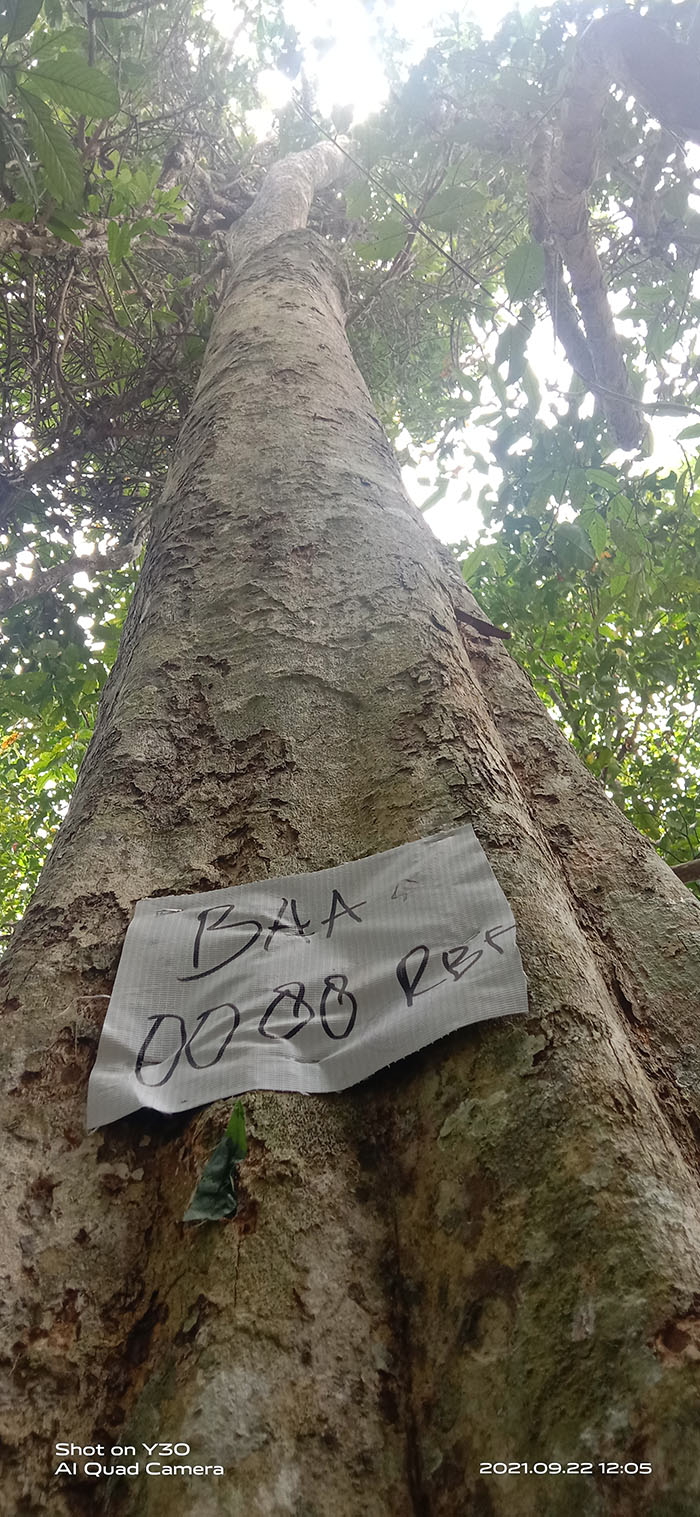 BAA
0088 RBF
Shot on Y30
AI Quad Camera
2021.09.22 12:05